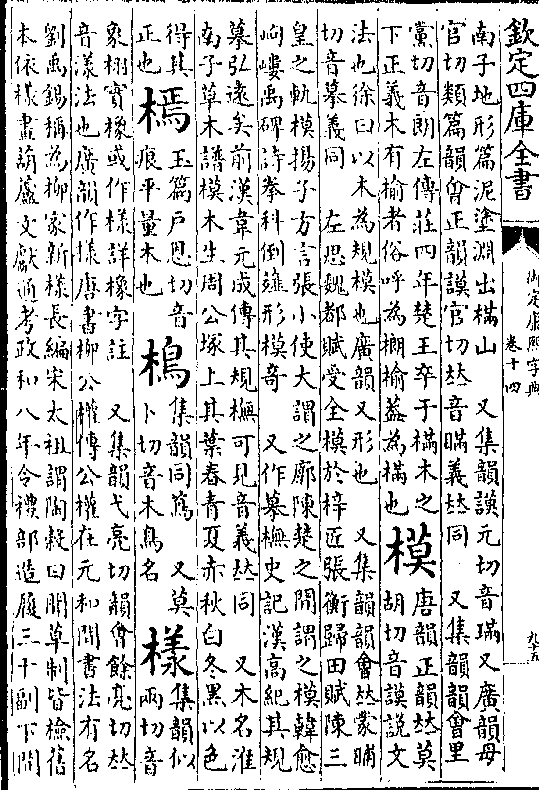 欽定四庫全書
御定康熙字典
卷十四
九十五
南子地形篇泥塗淵出樠山 又集韻謨元切音璊又廣韻母
官切類篇韻會正韻謨官切𠀤音瞞義𠀤同 又集韻韻會里
黨切音朗左傳莊四年楚王卒于樠木之
下正義木有榆者俗呼為榔榆葢為樠也
模
唐韻正韻𠀤莫
胡切音謨說文
法也徐曰以木為規模也廣韻又形也 又集韻韻會𠀤蒙晡
切音摹義同 左思魏都賦受全模於梓匠張衡歸田賦陳三
皇之軌模揚子方言張小使大謂之廓陳楚之間謂之模韓愈
岣嶁禹碑詩拳科倒薤形模奇 又作摹橅史記漢高紀其規
摹弘遠矣前漢韋元成傳其規橅可見音義𠀤同 又木名淮
南子草木譜模木生周公塚上其葉春青夏赤秋白冬黑以色
得其
正也
玉篇戶恩切音
痕平量木也
樢
集韻同蔦 又莫
卜切音木鳥名
樣
集韻似
兩切音
象栩實橡或作様詳橡字註 又集韻弋亮切韻會餘亮切𠀤
音漾法也廣韻作樣唐書柳公權傳公權在元和間書法有名
劉禹錫稱為柳家新樣長編宋太祖謂陶穀曰聞草制皆檢舊
本依樣畫葫蘆文獻通考政和八年令禮部造履三十副下開